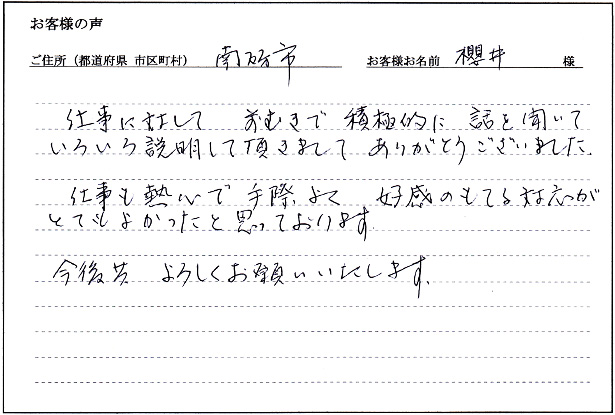 お客様の声
ご住所（都道府県 市区町村） 南砺市 お客様お名前 櫻井 様
仕事に対して 前むきで 積極的に 話を聞いて
いろいろ説明して頂きまして ありがとうございました.
仕事も熱心で 手際よく 好感のもてる対応が
とてもよかったと思っております
今後共 よろしくお願いいたします.